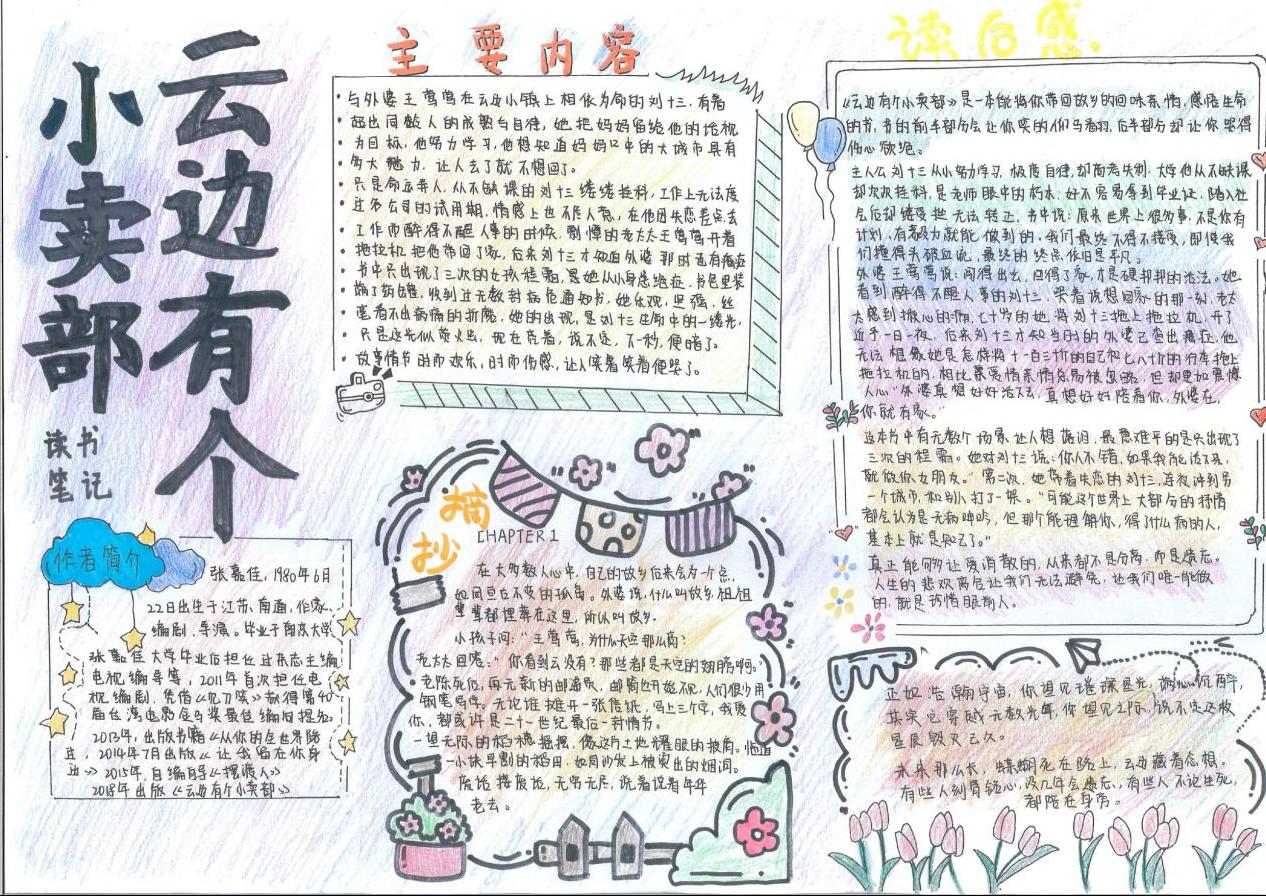 云边有个
小卖部
读书
笔记
作者简介
张嘉佳，1980年6月
22日出生于江苏，南通，作家、
编剧、导演。毕业于南京大学
张嘉佳大学毕业后担任过杂志主编
电视编导等，2011年首次担任电
视编剧，凭借《刀见笑》获得第48
届台湾电影金马奖最佳编剧提名
2013年，出版书籍《从你的全世界路
过，2014年7月出版《让我留在你身
边》2015年，自编自导《摆渡人》
2018年出版《云边有个小卖部》
主要内容
与外婆王莺莺在云边小镇上相依为命的刘十三，有着
超出同龄人的成熟与自律，他把妈妈留给他的话视
为目标，他努力学习，他想知道妈妈口中的大城市具有
多大魅力，让人去了就不想回了。
只是命运弄人，从不缺课的刘十三继续挂科，工作上无法度
过各公司的试用期，情感上也不尽人意，在他因失恋差点丢
工作而醉得不醒人事的时候，剽悍的老太太王莺莺开着
拖拉机把他带回了家，后来刘十三才知道外婆那时已有癌症
书中只出现了三次的女孩程霜，是她从小身患绝症，书包里装
满了药罐，收到过无数封病危通知书，她乐观，坚强，丝
毫看不出病痛的折磨，她的出现，是刘十三生命中的一缕光，
只是这光似萤火虫，现在亮着，说不定，下一秒，便暗了。
故事情节时而欢乐，时而伤感，让人笑着笑着便哭了。
摘
抄
CHAPTER 1
在大多数人心中，自己的故乡后来会为一个点，
如同亘古不变的孤岛。外婆说，什么叫故乡，祖祖
辈辈都埋葬在这里，所以叫故乡。
小孩子问："王莺莺，为什么天空那么高？
老太太回答："你看到云没有？那些都是天空的翅膀啊。"
老陈死后，再无新的邮递员，邮筒也开始不见，人们很少用
钢笔写字。无论谁摊开一张信纸，写上三个字，我爱
你，都或许是二十一世纪最后一封情书。
一望无际的稻穗摇摆，像这片土地耀眼的披肩。
一小块早割的稻田，如同沙发上被烫出的烟洞。
废话接废话，无穷无尽，说着说着年华
老去。
读后感.
《云边有个小卖部》是一本能将你带回故乡的回味亲情，感悟生命
的书，书的前半部分会让你笑的人仰马翻，后半部分却让你哭得
伤心欲绝。
主人公刘十三从小努力学习，极度自律，却高考失利，大学他从不缺课
却次次挂科，是老师眼中的朽木；好不容易拿到毕业证，踏入社
会后却继续挫无法转正，书中说：原来世界上很多事，不是你有
计划，有毅力就能做到的，我们最终不得不接受，即使我
们撞得头破血流，最终的终点依旧是平凡。
外婆王莺莺说：闯得出去，回得了家，才是硬邦邦的活法。她
看到醉得不醒人事的刘十三，哭着说想回家的那一刻，老太
太感到揪心的痛，七十岁的她将刘十三拖上拖拉机，开了
近乎一日一夜，后来刘十三才知当时的外婆已查出癌症，他
无法想象她是怎样将一百三十斤的自己和七八十斤的行李拖上
拖拉机的，相比亲爱情亲情总易被忽略，但却更加震憾
人心"外婆真想好好活下去，真想好好陪着你，外婆在，
你就有家。"
这本书中有无数个场景让人想落泪，最意难平的是只出现了
三次的程霜。她对刘十三说：你人不错，如果我能活下去，
就做你女朋友。"第二次，她带着失恋的刘十三，连夜冲到另
一个城市，和别人打了一架。"可能这个世界上大部分的抒情
都会认为是无病呻吟，但那个能理解你，得了什么病的人，
基本上就是知己了。"
真正能够让爱消散的，从来都不是分离，而是遗忘。
人生的悲欢离合让我们无法避免，让我们唯一能做
的，就是珍惜眼前人。
正如浩瀚宇宙，你望见璀璨星光，满心沉醉，
其实它穿越无数光年，你望见之际，说不定这枚
星辰毁灭已久。
未来那么长，蝴蝶死在路上，云边藏着念想。
有些人刻骨铭心，没几年会遗忘，有些人不论生死，
都陪在身旁。